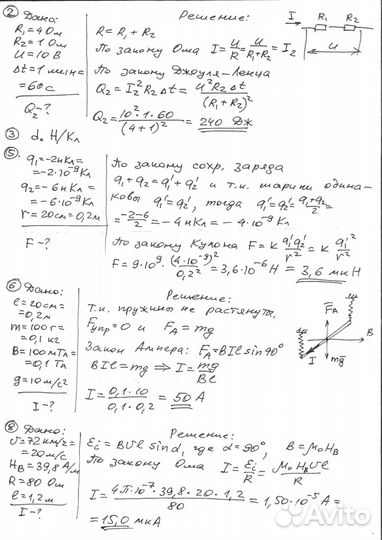 ② Дано:
R₁ = 4 Ом
R₂ = 1 Ом
U = 10 В
Δt = 1 мин =
= 60 с
Q₂ - ?
Решение:
R = R₁ + R₂
По закону Ома I = U/R = U/(R₁+R₂) = I₂
По закону Джоуля-Ленца
Q₂ = I₂² R₂ Δt = U² R₂ Δt/(R₁+R₂)²
Q₂ = 10²·1·60/(4+1)² = 240 Дж
I R₁ R₂
U
③ d. Н/Кл
⑤ q₁ = -2 нКл =
= -2·10⁻⁹ Кл
q₂ = -6 нКл =
= -6·10⁻⁹ Кл
r = 20 см = 0,2 м
F - ?
По закону сохр. заряда
q₁ + q₂ = q₁' + q₂' и т.к. шарики одина-
ковы q₁' = q₂', тогда q₁' = q₂' = (q₁+q₂)/2 =
= (-2-6)/2 = -4 нКл = -4·10⁻⁹ Кл
По закону Кулона F = k q₁'q₂'/r² = k q₁'²/r²
F = 9·10⁹ · (4·10⁻⁹)²/0,2² = 3,6·10⁻⁶ Н = 3,6 мкН
⑥ Дано:
l = 20 см =
= 0,2 м
m = 100 г =
= 0,1 кг
B = 100 мТл =
= 0,1 Тл
g = 10 м/с²
I - ?
Решение:
Т.к. пружины не растянуты,
Fупр = 0 и F_A = mg
Закон Ампера: F_A = BIl sin 90°
BIl = mg ⇒ I = mg/Bl
I = 0,1·10/0,1·0,2 = 50 А
F_A
B
I mg
⑧ Дано:
υ = 72 км/ч =
= 20 м/с
H_B = 39,8 А/м
R = 80 Ом
l = 1,2 м
I - ?
Решение:
εᵢ = Bυl sin α, где α = 90°, B = μ₀H_B
По закону Ома I = εᵢ/R = μ₀H_Bυl/R
I = 4π·10⁻⁷·39,8·20·1,2/80 = 1,50·10⁻⁵ А =
= 15,0 мкА
Avito